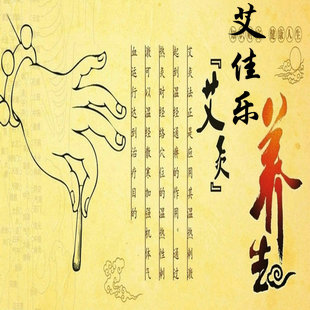 健康人生
艾佳乐
养生
『艾灸』
艾灸法正是应用其温热刺激
起到温经通痹的作用。通过
热灸对经络穴位的温热性刺
激可以温经散寒加强机体气
血运行达到治疗目的